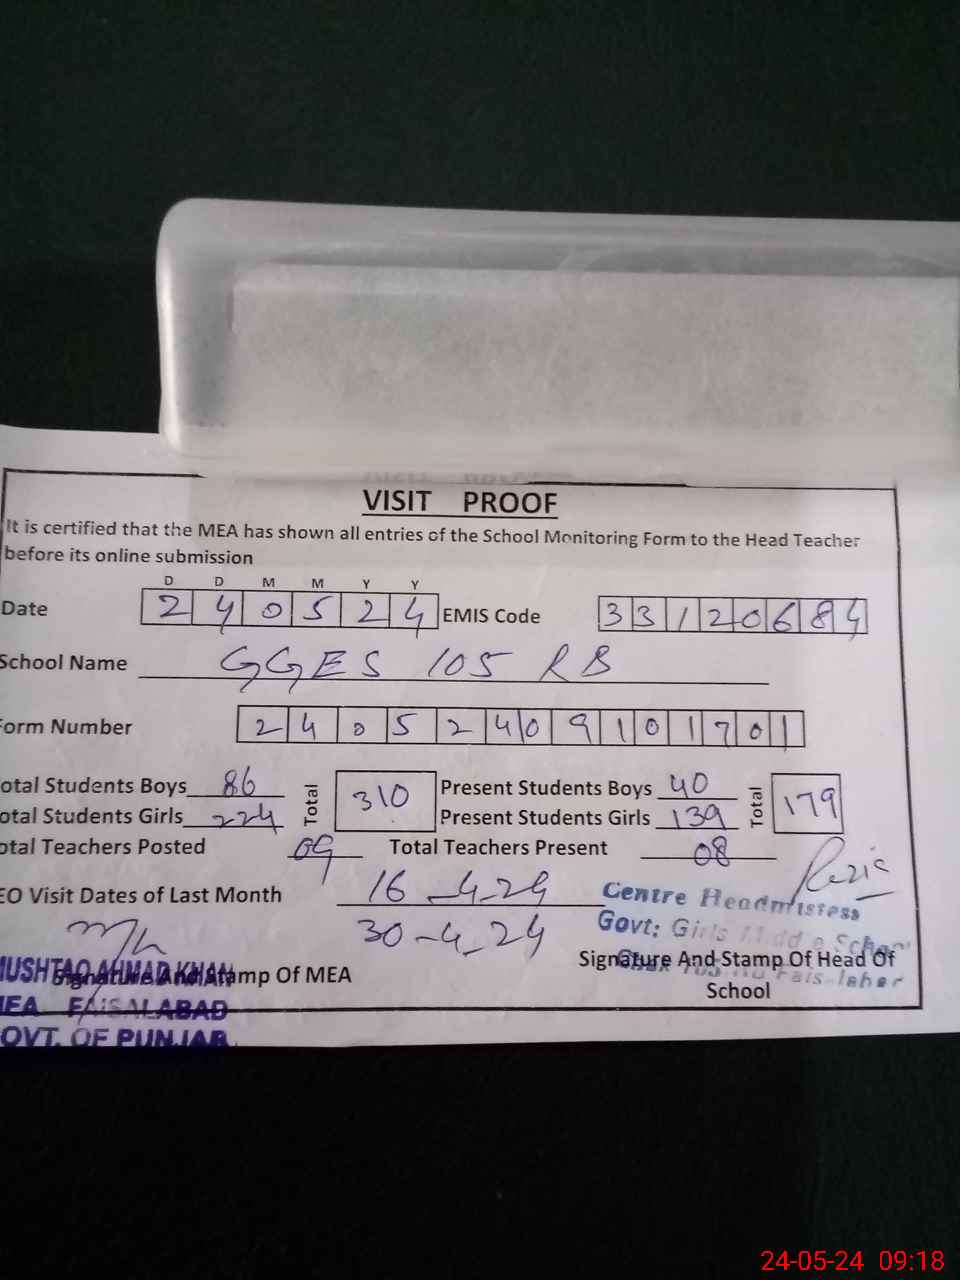 VISIT PROOF
It is certified that the MEA has shown all entries of the School Monitoring Form to the Head Teacher
before its online submission
D D M M Y Y
Date 2 4 0 5 2 4 EMIS Code 3 3 1 2 0 6 8 4
School Name GGES 105 RB
Form Number 2 4 0 5 2 4 0 9 1 0 1 7 0 1
otal Students Boys 86 Total 310 Present Students Boys 40 Total 179
otal Students Girls 224 Present Students Girls 139
otal Teachers Posted 09 Total Teachers Present 08
EO Visit Dates of Last Month 16-4-24
30-4-24
Centre Headmistess
Govt: Girls
Signature And Stamp Of MEA
Signature And Stamp Of Head Of
School
MUSHTAQ AHMAD KHAN
MEA FAISALABAD
OVT. OF PUNJAB
24-05-24 09:18